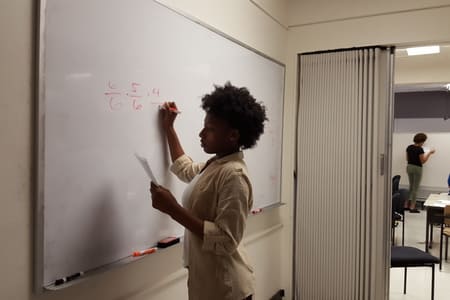 6/6 · 5/6 · 4